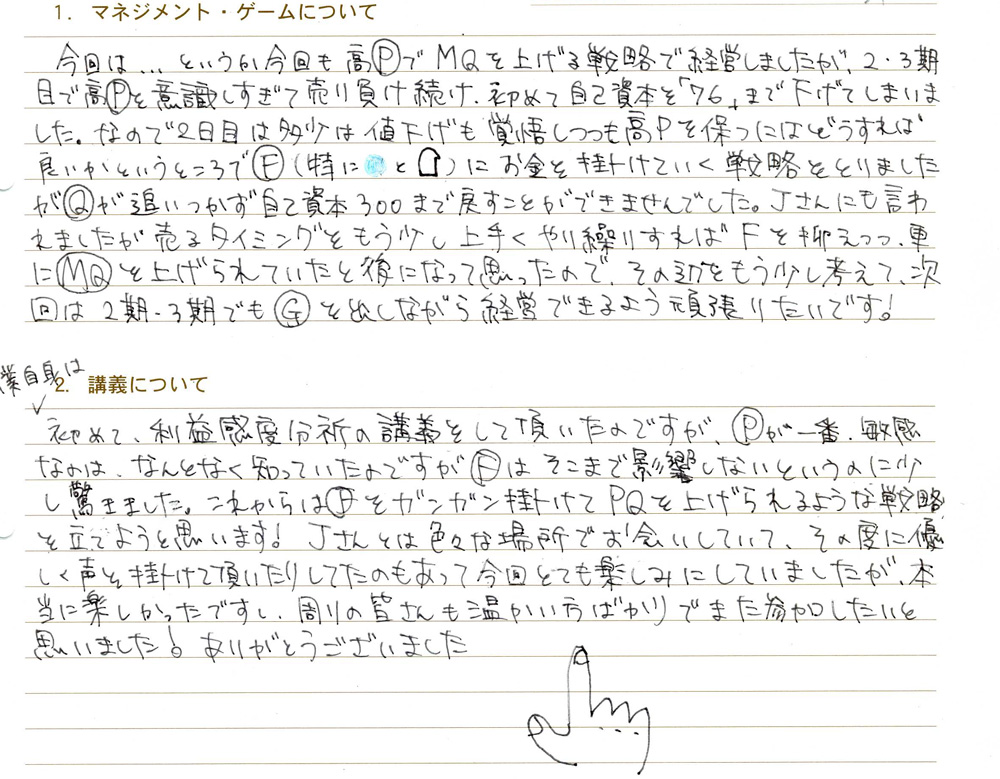 1. マネジメント・ゲームについて
今回は…というか今回も高ⓅでMQを上げる戦略で経営しましたが、2・3期
目で高Ⓟを意識しすぎて売り負け続け、初めて自己資本を「76」まで下げてしまいま
した。なので2日目は多少は値下げも覚悟しつつも高Pを保つにはどうすれば
良いかというところでⒻ(特に と )にお金を掛けていく戦略をとりました
がⓆが追いつかず自己資本300まで戻すことができませんでした。Jさんにも言わ
れましたが売るタイミングをもう少し上手くやり繰りすればFを抑えつつ、更
にMQを上げられていたと後になって思ったので、その辺をもう少し考えて、次
回は2期・3期でもⒼを出しながら経営できるよう頑張りたいです!
僕自身は
2. 講義について
初めて、利益感度分析の講義をして頂いたのですが、Ⓟが一番、敏感
なのは、なんとなく知っていたのですがⒻはそこまで影響しないというのに少
し驚きました。これからはⒻをガンガン掛けてPQを上げられるような戦略
を立てようと思います! Jさんとは色々な場所でお会いしていて、その度に優
しく声を掛けて頂いたりしてたのもあって今回とても楽しみにしていましたが、本
当に楽しかったですし、周りの皆さんも温かい方ばかりでまた参加したいと
思いました! ありがとうございました